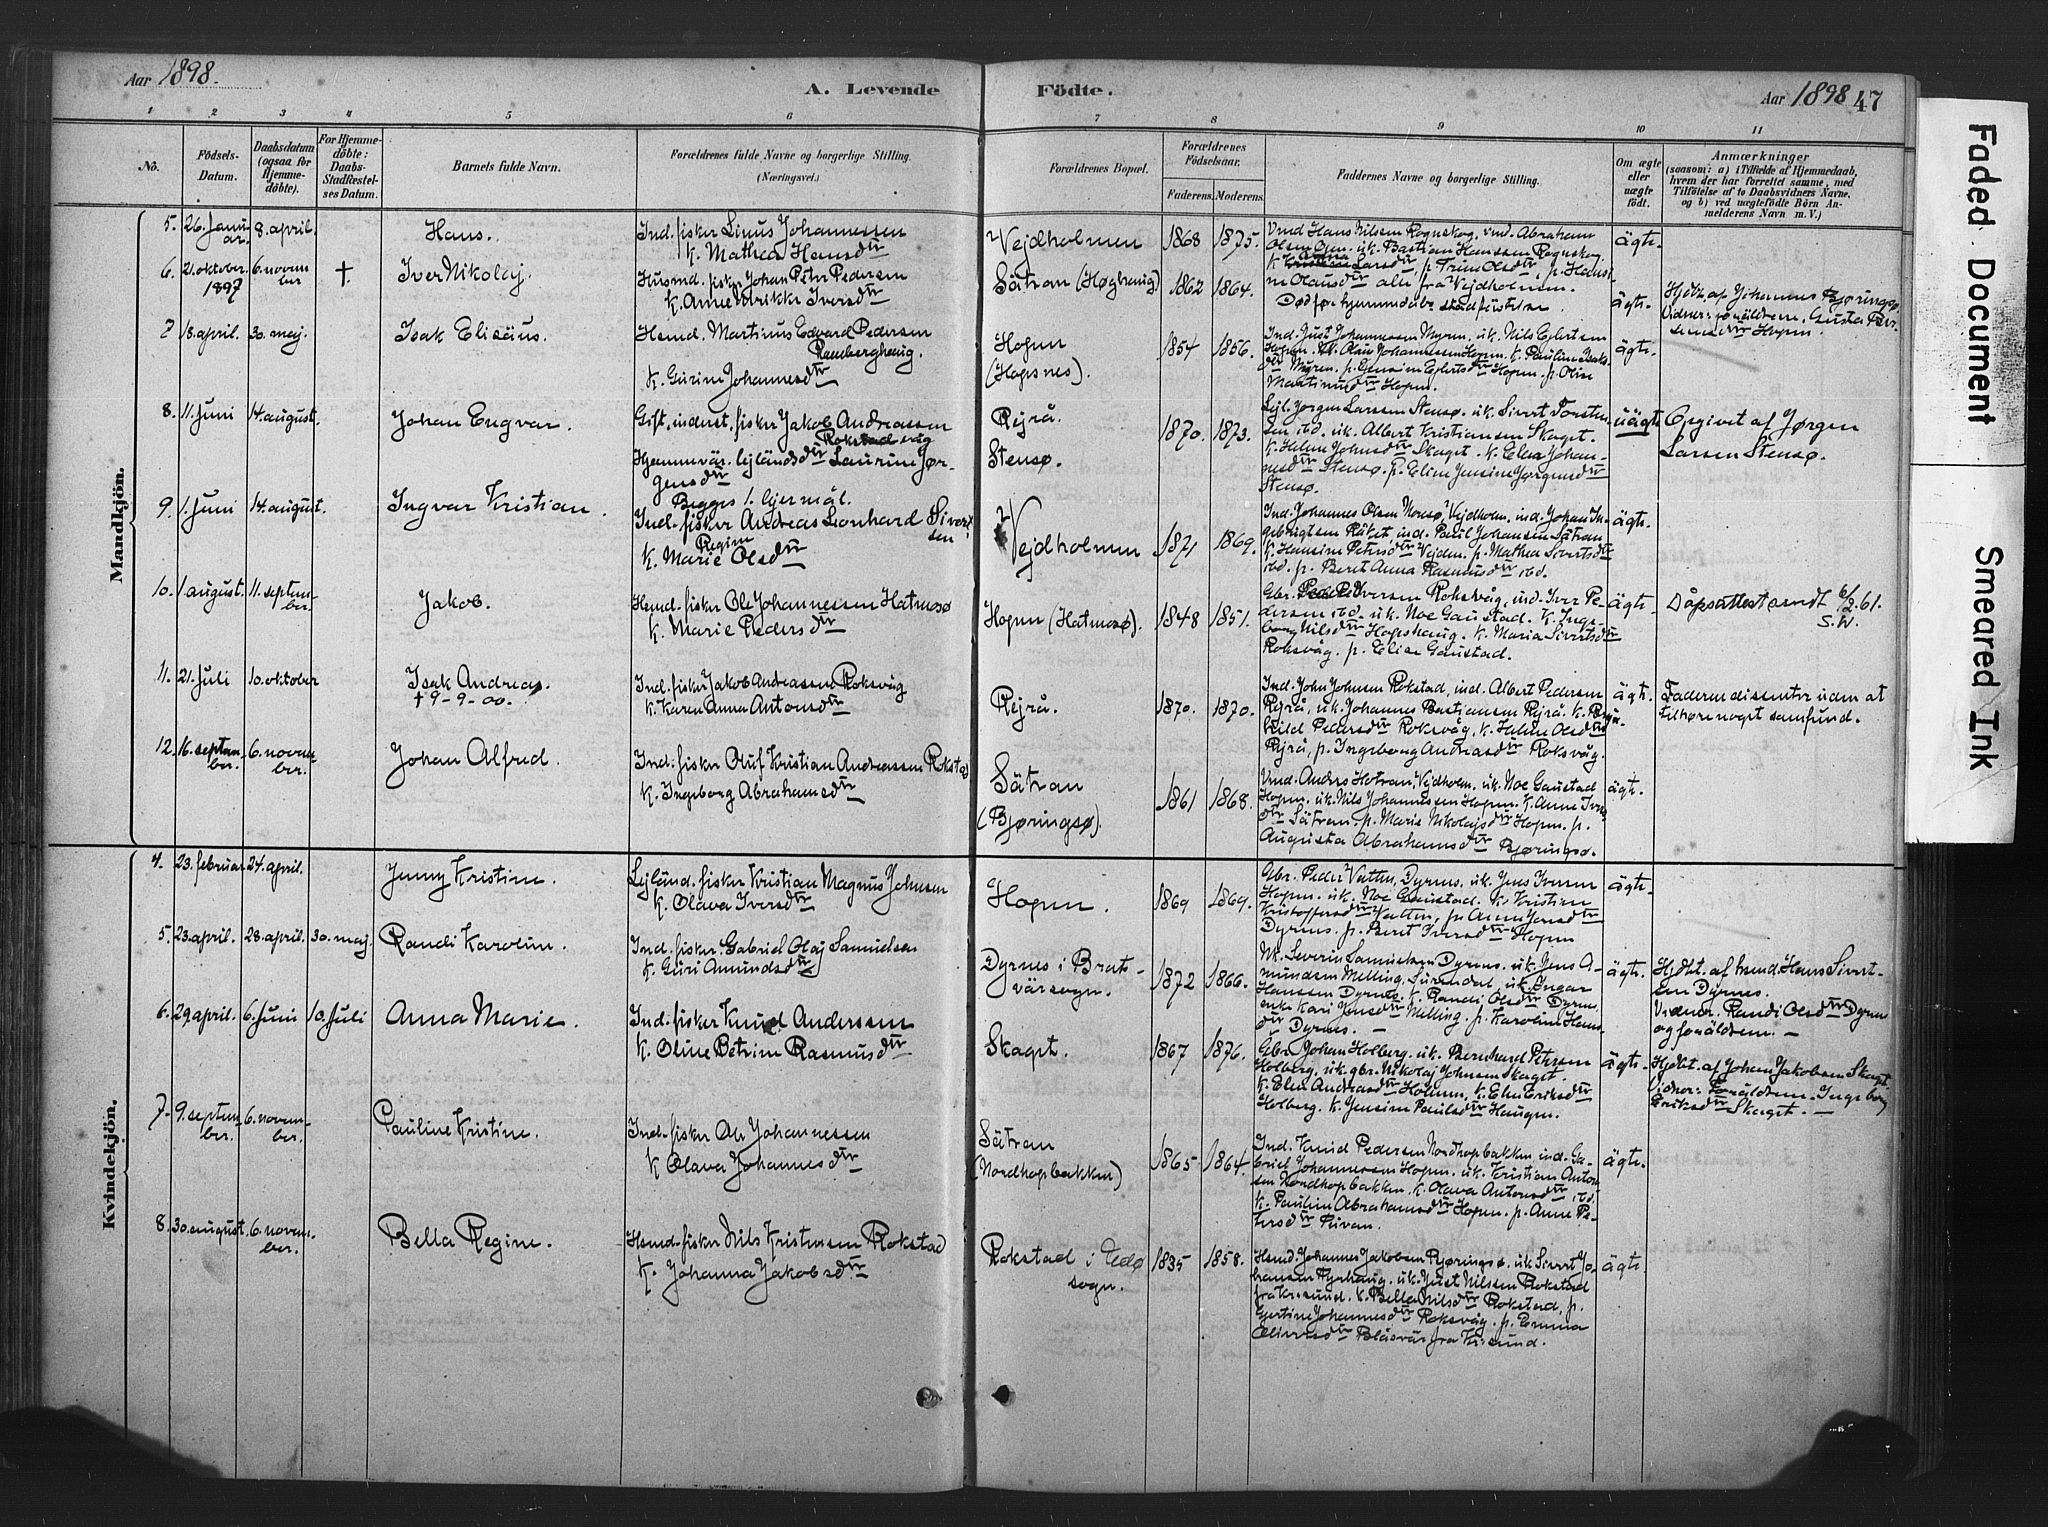 Aar 1898.
A. Levende Födte.
Aar 1898 47
1 2 3 4 5 6 7 8 9 10 11
No.
Födsels-
Datum.
Daabsdatum
(ogsaa for
Hjemme-
döbte).
For Hjemme-
döbte:
Daabs-
Stadfæstel-
ses Datum.
Barnets fulde Navn.
Forældrenes fulde Navne og borgerlige Stilling.
(Næringsvei.)
Forældrenes Bopæl.
Forældrenes
Födselsaar.
Faderens. Moderens.
Faddernes Navne og borgerlige Stilling.
Om ægte
eller
uægte
födt.
Anmærkninger
(saasom: a) i Tilfælde af Hjemmedaab,
hvem der har forrettet samme, med
Tilföielse af to Daabsvidners Navne,
og b) ved uægtefödte Börn An-
melderens Navn m. V.)
Mandkjön.
5. 26. januar. 8. april.
Hans.
Ind. fisker Linus Johannessen
k. Mathea Hansdtr
Vejdholmen
1868 1875.
Vmd Hans Nilsen Rognskog, ind. Abraham
ägte.
6. 21. oktober 1897 6. november †
Iver Nikolaj.
Husmd. fisker Johan Peter Pedersen
k. Anne Ulrikke Iversdtr
Sätran (Høghaug)
1862 1864.
ne Olausdtr alle fra Vejdholmen.
Død før hjemmedåbs stadfästelse
ägte.
Hjdbt. af Johannes Bjøringsø.
7 18. april. 30. maj.
Isak Elisäus.
Hsmd. Martinus Edvard Pedersen
Ramberghaug.
k. Gurine Johannesdtr
Hopen
(Hopsnes).
1854 1856.
Ind. Just Johannessen Myren, uk. Nils Eglertsen
Hopen. uk. Olaus Johannessen Hopen. k. Pauline Isaks-
dtr Myren. p. Gjensine Eglertsdtr Hopen. p. Olise
Martinusdtr Hopen.
ägte.
8. 11. juni 14. august.
Johan Engvar.
Gift, inderst, fisker Jakob Andreassen
Roksvåg
Hjemmevär. lejländsdtr Laurine Jør-
gensdtr
Begges 1. lejermål.
Rejrå.
Stensø.
1870. 1873.
Lejl. Jørgen Larssen Stensø. uk. Sivert Torsten-
sen ibd. uk. Albert Kristiansen Skaget.
k. Helene Johnsdtr Skaget. k. Elen Johan-
nesdtr Stensø. p. Eline Jensine Jørgensdtr
Stensø.
uägte
Opgivet af Jørgen
Larsen Stensø.
9. 1. juni 14. august.
Ingvar Kristian.
Ind. fisker Andreas Leonhard Sivert-
sen
k. Marie Regine Olsdtr
Vejdholmen
1871 1869.
Ind. Johannes Olsen Morsø, Vejdholm. ind. Johan In-
gebrigtsen Råket ind. Paul Johansen Sätran
k. Hansine Petersdtr Vejden. p. Mathea Sivertsdtr
ibd. p. Beret Anna Rasmusdtr ibd.
ägte.
10. 1. august. 11. september.
Jakob.
Hsmd. fisker Ole Johannessen Hatmosø
k. Marie Pedersdtr
Hopen (Hatmosø).
1848 1851.
Gbr. Peder Iversen Roksvåg, ind. Iver Pe-
dersen ibd. uk. Noe Gaustad. k. Inge-
borg Nilsdtr Hopshaug. k. Maria Sivertsdtr
Roksvåg. p. Elise Gaustad.
ägte.
Dåpsattest sendt 6/2.61.
S.W.
11. 21. juli 10. oktober
Isak Andreas.
† 9-9-00.
Ind. fisker Jakob Andreassen Roksvåg
k. Karen Anna Antonsdtr
Rejrå.
1870. 1870.
Ind. John Johnsen Rokstad, ind. Albert Pedersen
Rejrå, uk. Johannes Bastiansen Rejrå. k. Ragn-
hild Pedersdtr Roksvåg, k. Helene Olsdtr
Rejrå, p. Ingeborg Andreasdtr Roksvåg.
ägte.
Faderen dissenter uden at
tilhøre noget samfund.
12. 16. september. 6. november.
Johan Alfred.
Ind. fisker Oluf Kristian Andreassen Rokstad
k. Ingeborg Abrahamsdtr
Sätran
(Bjøringsø).
1861 1868.
Vmd. Anders Hotran, Vejdholm. uk. Noe Gaustad
Hopen. uk. Nils Johannessen Hopen. k. Anne Ivers-
dtr Sätran. p. Marie Nikolajsdtr Hopen. p.
Augusta Abrahamsdtr Bjøringsø.
ägte.
Kvindekjön.
4. 23. februar 24. april.
Jenny Kristine.
Lejländ. fisker Kristian Magnus Johnsen
k. Olava Iversdtr
Hopen.
1869 1869.
Gbr. Peder Vatten, Dyrnes. uk. Jens Iversen
Hopen. uk. Noe Gaustad. k. Kristine
Kristoffersdtr Vatten, p. Anne Jensdtr
Dyrnes. p. Beret Iversdtr Hopen
ägte.
5. 23. april. 28. april. 30. maj.
Randi Karoline.
Ind. fisker Gabriel Olaj Samuelsen
k. Guri Amundsdtr
Dyrnes i Brat-
värsogn.
1872 1866.
Nk. Severin Samuelsen Dyrnes. uk. Jens A-
mundsen Melling, Surendal. uk. Ingar
Hanssen Dyrnes. k. Randi Olsdtr Dyrnes
enke Kari Jensdtr Melling. p. Karoline Hans-
dtr Dyrnes. —
ägte.
Hjdbt. af hsmd. Hans Sivert-
sen Dyrnes.
Vidner. Randi Olsdtr Dyrnes
og foräldrene. —
6. 29. april. 6. juni 10. juli
Anna Marie.
Ind. fisker Knud Anderssen
k. Oline Petrine Rasmusdtr
Skaget.
1867 1876.
Gbr. Johan Holberg. uk. Bernhard Petersen
Holberg, uk. gbr. Nikolaj Johnsen Skaget.
k. Elen Andreasdtr Holmen, k. Elen Eriksdtr
Holberg. k. Jensine Paulsdtr Haugen.
ägte.
Hjdbt. af Johan Jakobsen Skaget.
Vidner: Foräldrene. Ingeborg
Eriksdtr Skaget. —
7. 9. september. 6. november.
Pauline Kristine.
Ind. fisker Ole Johannessen
k. Olava Johannesdtr
Sätran
(Nordhopbakken)
1865 1864.
Ind. Knud Pedersen Nordhopbakken ind. Ga-
briel Johannessen Hopen. uk. Kristian Anton-
sen Nordhopbakken. k. Olava Antonsdtr ibd.
k. Pauline Abrahamsdtr Hopen. p. Anne Pe-
tersdtr Rivan.
ägte.
8. 30. august 6. november.
Bella Regine.
Hsmd. fisker Nils Kristensen Rokstad
k. Johanna Jakobsdtr
Rokstad i Edø
sogn.
1835 1858.
Hsmd. Johannes Jakobsen Bjøringsø. uk. Sivert Jo-
hansen Myrhaug. uk. Just Nilssen Rokstad
fra Kr.sund. k. Bella Nilsdtr Rokstad. p.
Gjertine Johannesdtr Roksvåg. p. Emma
Oliversdtr Blåsvär fra Kr.sund.
ägte.
Faded Document
Smeared Ink